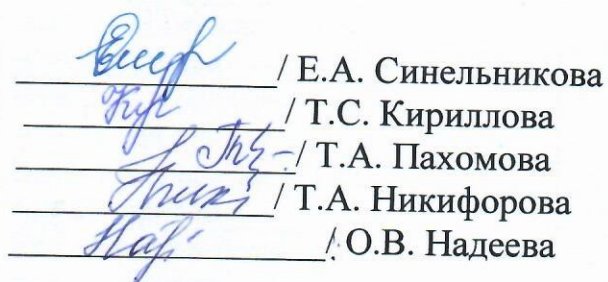 / Е.А. Синельникова
/ Т.С. Кириллова
/ Т.А. Пахомова
/ Т.А. Никифорова
/ О.В. Надеева